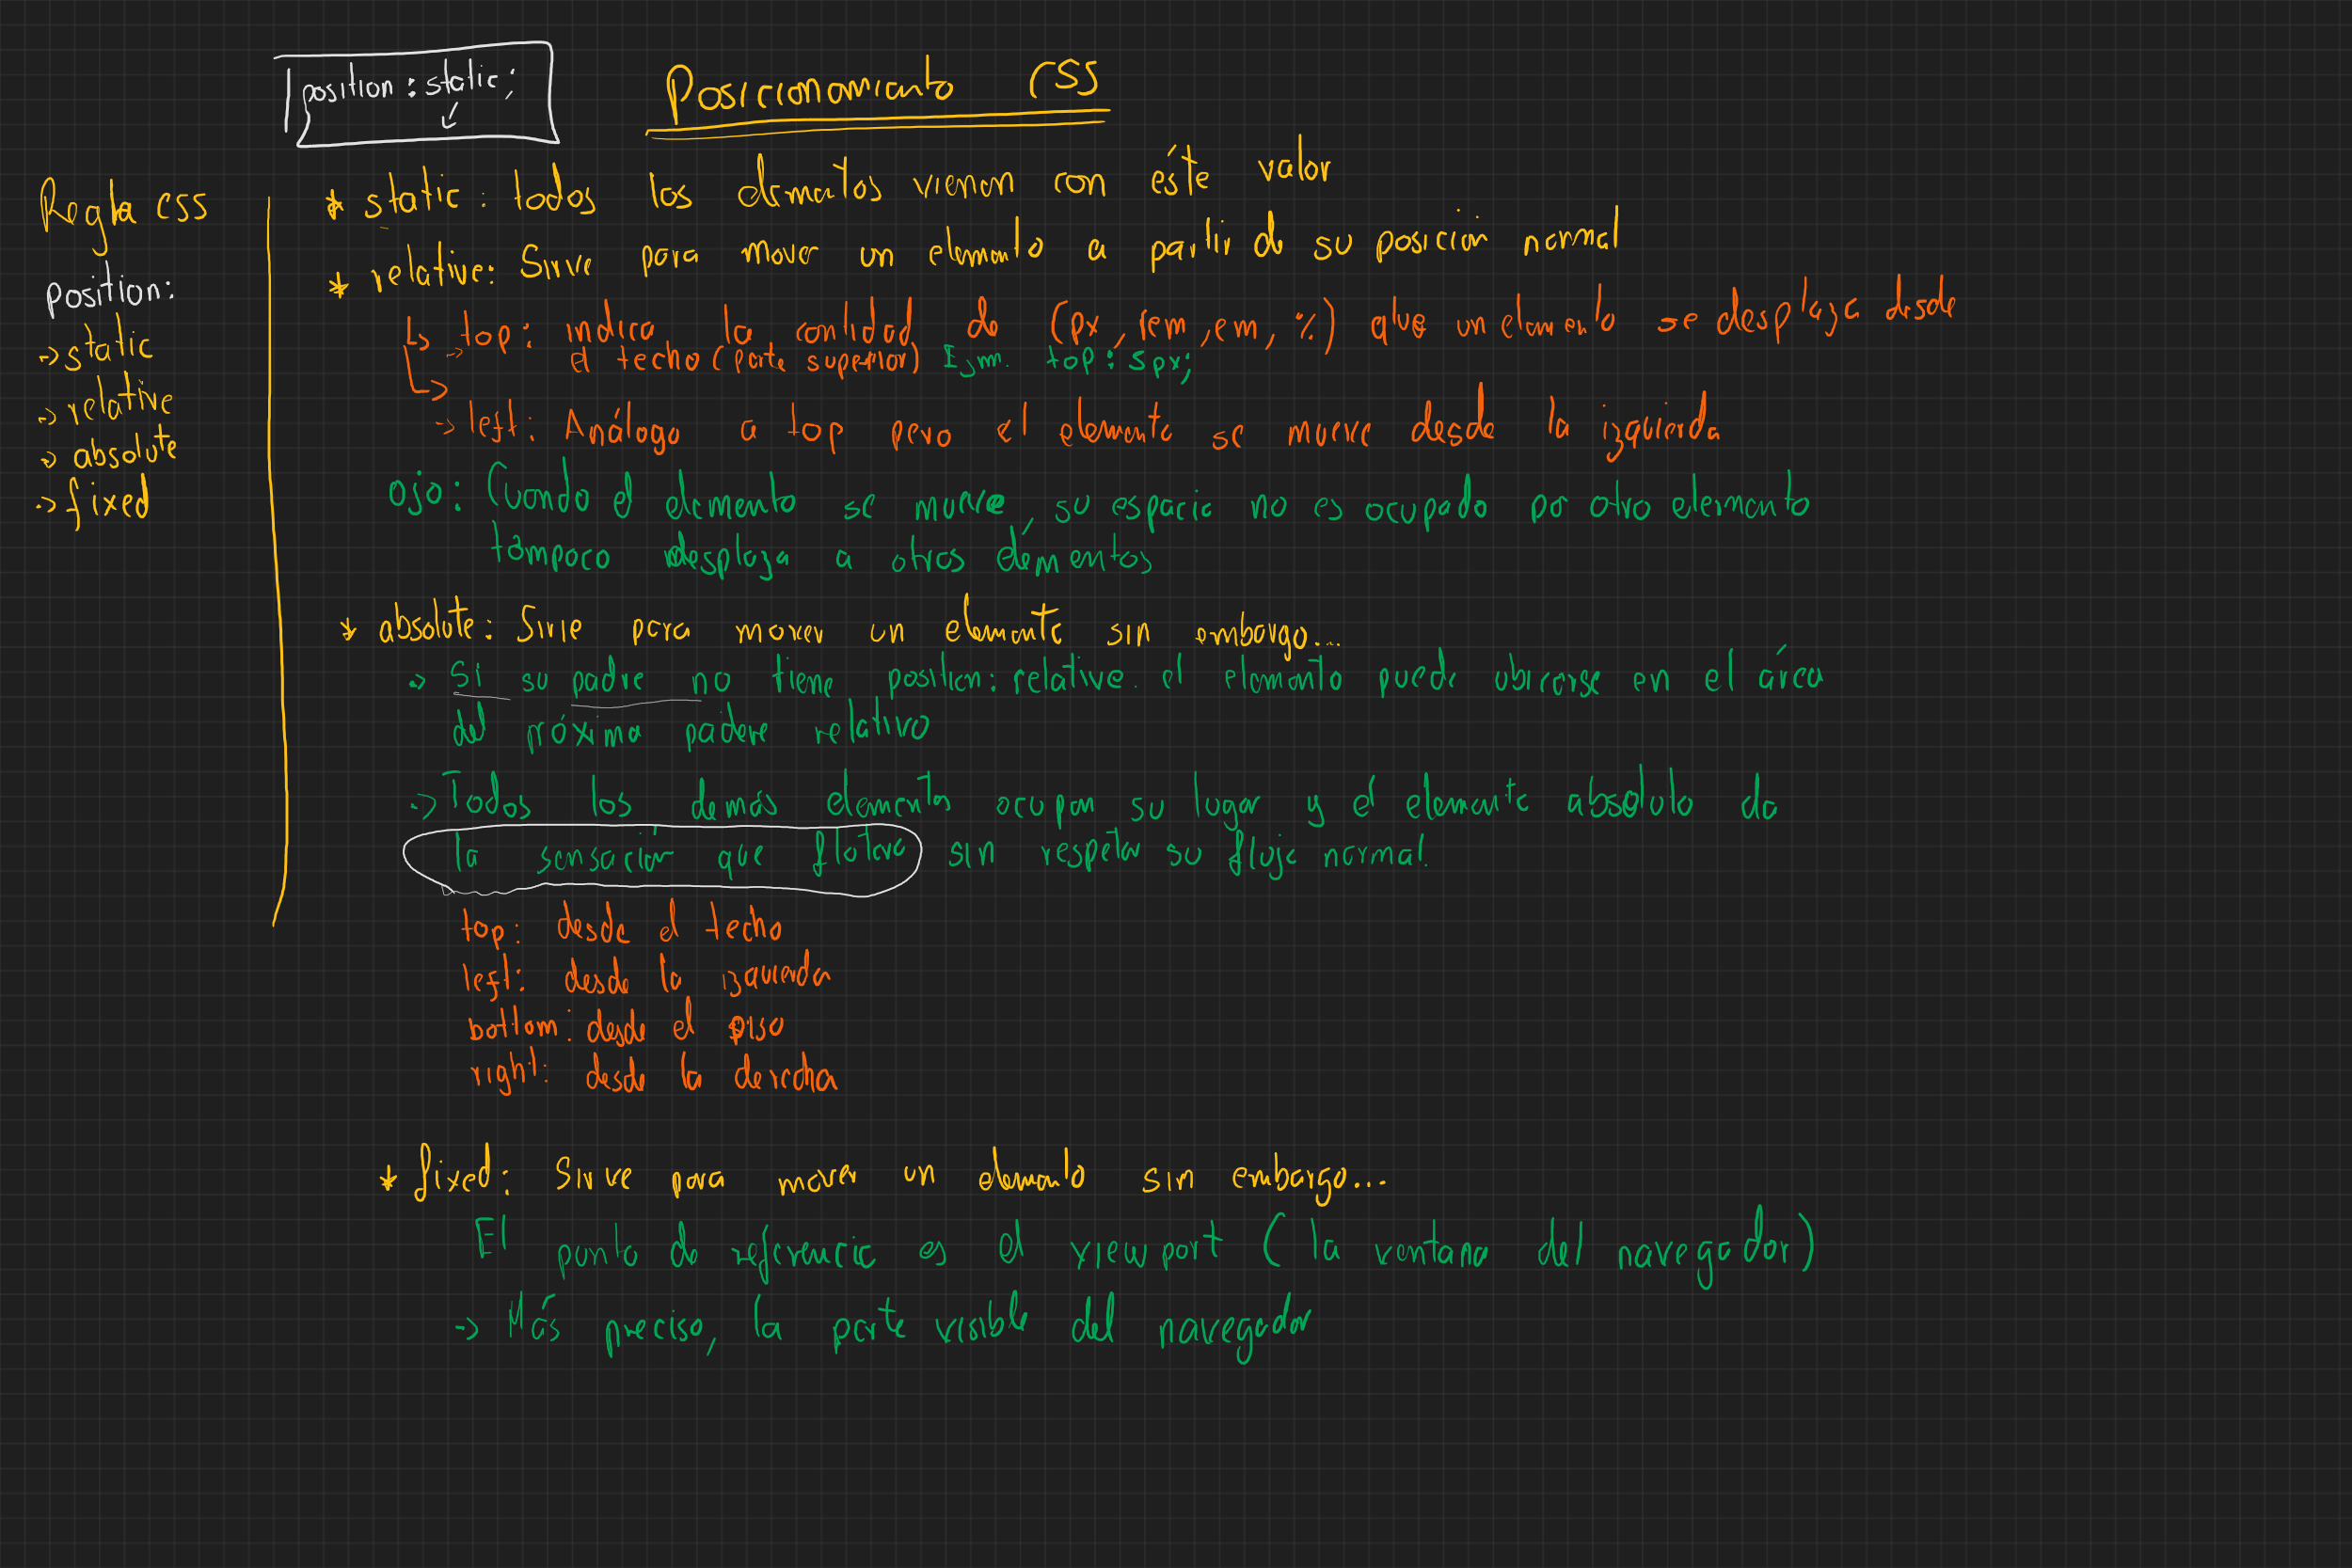 position: static;
Posicionamiento CSS
Regla CSS
position:
-> static
-> relative
-> absolute
-> fixed
* static: todos los elementos vienen con éste valor
* relative: Sirve para mover un elemento a partir de su posición normal
-> top: indica la cantidad de (px, rem, em, %) que un elemento se desplaza desde
el techo (parte superior) Ejm. top: 5px;
-> left: Análogo a top pero el elemento se mueve desde la izquierda
ojo: Cuando el elemento se mueve, su espacio no es ocupado por otro elemento
tampoco desplaza a otros elementos
* absolute: Sirve para mover un elemento sin embargo...
-> Si su padre no tiene position: relative. el elemento puede ubicarse en el área
del próxima padere relativo
-> Todos los demás elementos ocupan su lugar y el elemento absoluto da
la sensación que flotara sin respetar su flujo normal.
top: desde el techo
left: desde la izquierda
bottom: desde el piso
right: desde la derecha
* fixed: Sirve para mover un elemento sin embargo...
El punto de referencia es el viewport (la ventana del navegador)
-> Más preciso, la parte visible del navegador